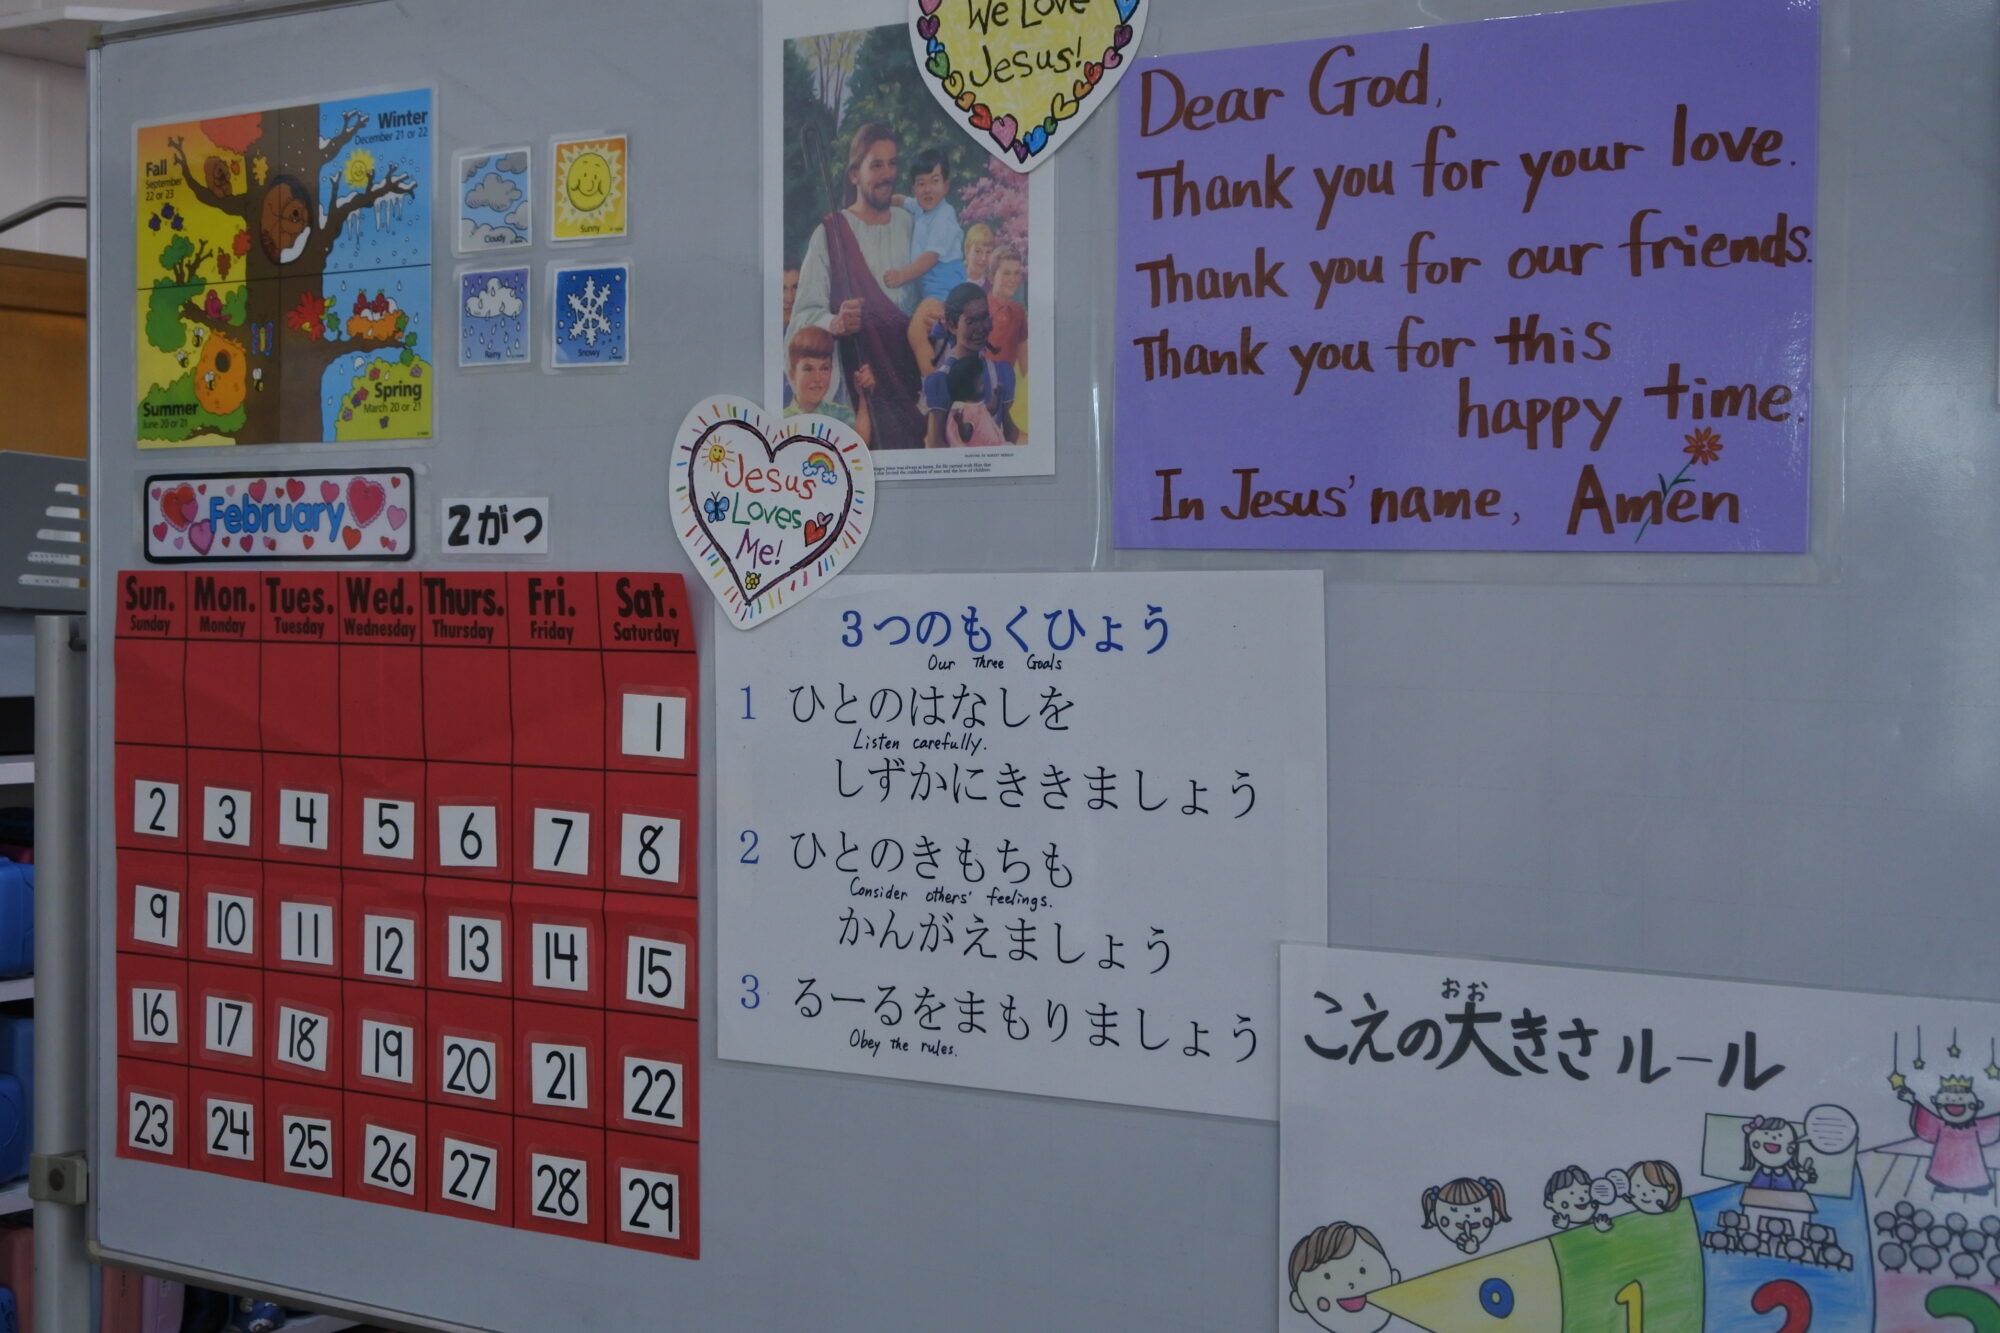 We Love
Jesus!
Fall
September
22 or 23
Winter
December 21 or 22
Summer
June 20 or 21
Spring
March 20 or 21
Cloudy
Sunny
Rainy
Snowy
Dear God,
Thank you for your love.
Thank you for our friends.
Thank you for this
happy time.
In Jesus' name, Amen
Jesus
Loves
Me!
February
2がつ
Sun. Mon. Tues. Wed. Thurs. Fri. Sat.
Sunday Monday Tuesday Wednesday Thursday Friday Saturday
1
2 3 4 5 6 7 8
9 10 11 12 13 14 15
16 17 18 19 20 21 22
23 24 25 26 27 28 29
3つのもくひょう
Our Three Goals
1 ひとのはなしを
Listen carefully.
しずかにききましょう
2 ひとのきもちも
Consider others' feelings.
かんがえましょう
3 るーるをまもりましょう
Obey the rules.
おお
こえの大きさルール
0 1 2 3